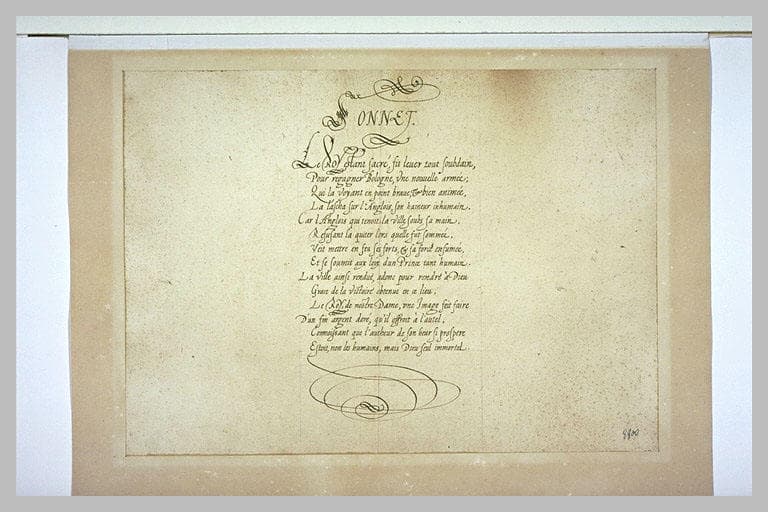 SONNET.
Le Roy estant sacré, fit lever tout soubdain,
Pour regagner Bologne, vne nouvelle armee,
Qui la voyant en point brave, & bien animee,
La lascha sur l'Anglois, son haineur inhumain.
Car l'Anglois qui tenoit la ville soubs sa main,
Refusant la quiter lors quelle fut sommee,
Veit mettre en feu ses forts, & sa force enfumee,
Et se soumit aux loix d'un Prince tant humain.
La ville ainsi rendue, adonc pour rendre à Dieu
Grace de la victoire obtenue en ce lieu,
Le Roy de nostre Dame, vne Image feit faire
D'un fin argent doré, qu'il offroit à l'autel,
Connoissant que l'autheur de son heur si prospere
Estoit, non les humains, mais Dieu seul immortel.